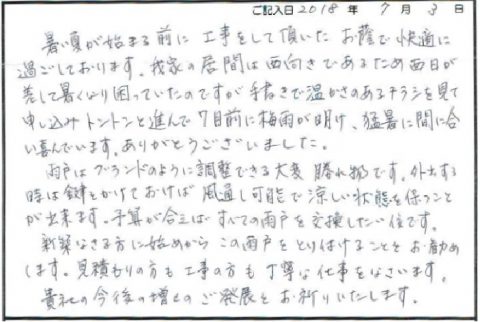 ご記入日 2018 年 7 月 3 日
暑い夏が始まる前に工事をして頂いたお蔭で快適に
過ごしております。我家の居間は西向きであるため西日が
差して暑くなり困っていたのですが手書きで温かさのあるチラシを見て
申し込みトントンと進んで7月前に梅雨が明け、猛暑に間に合
い喜んでいます。ありがとうございました。
雨戸はブラインドのように調整できる大変勝れ物です。外出する
時は鍵をかけておけば風通し可能で涼しい状態を保つこと
が出来ます。予算が合えばすべての雨戸を交換したい位です。
新築なさる方に始めからこの雨戸をとり付けることをお勧め
します。見積もりの方も工事の方も丁寧な仕事をなさいます。
貴社の今後の増々のご発展をお祈りいたします。